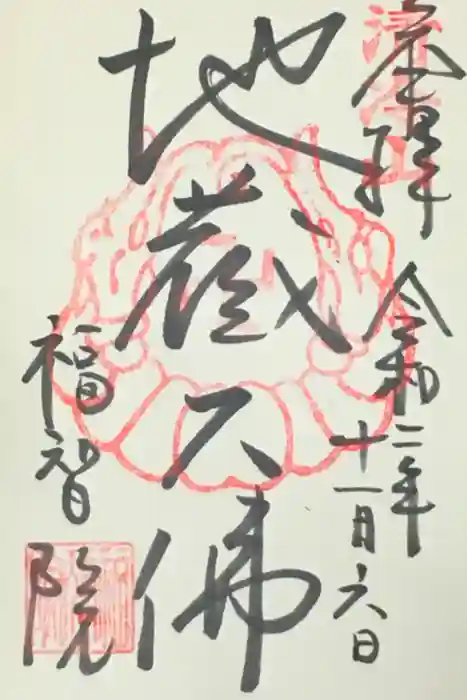 奉拝
令和二年
十一月六日
地蔵大佛
福智院